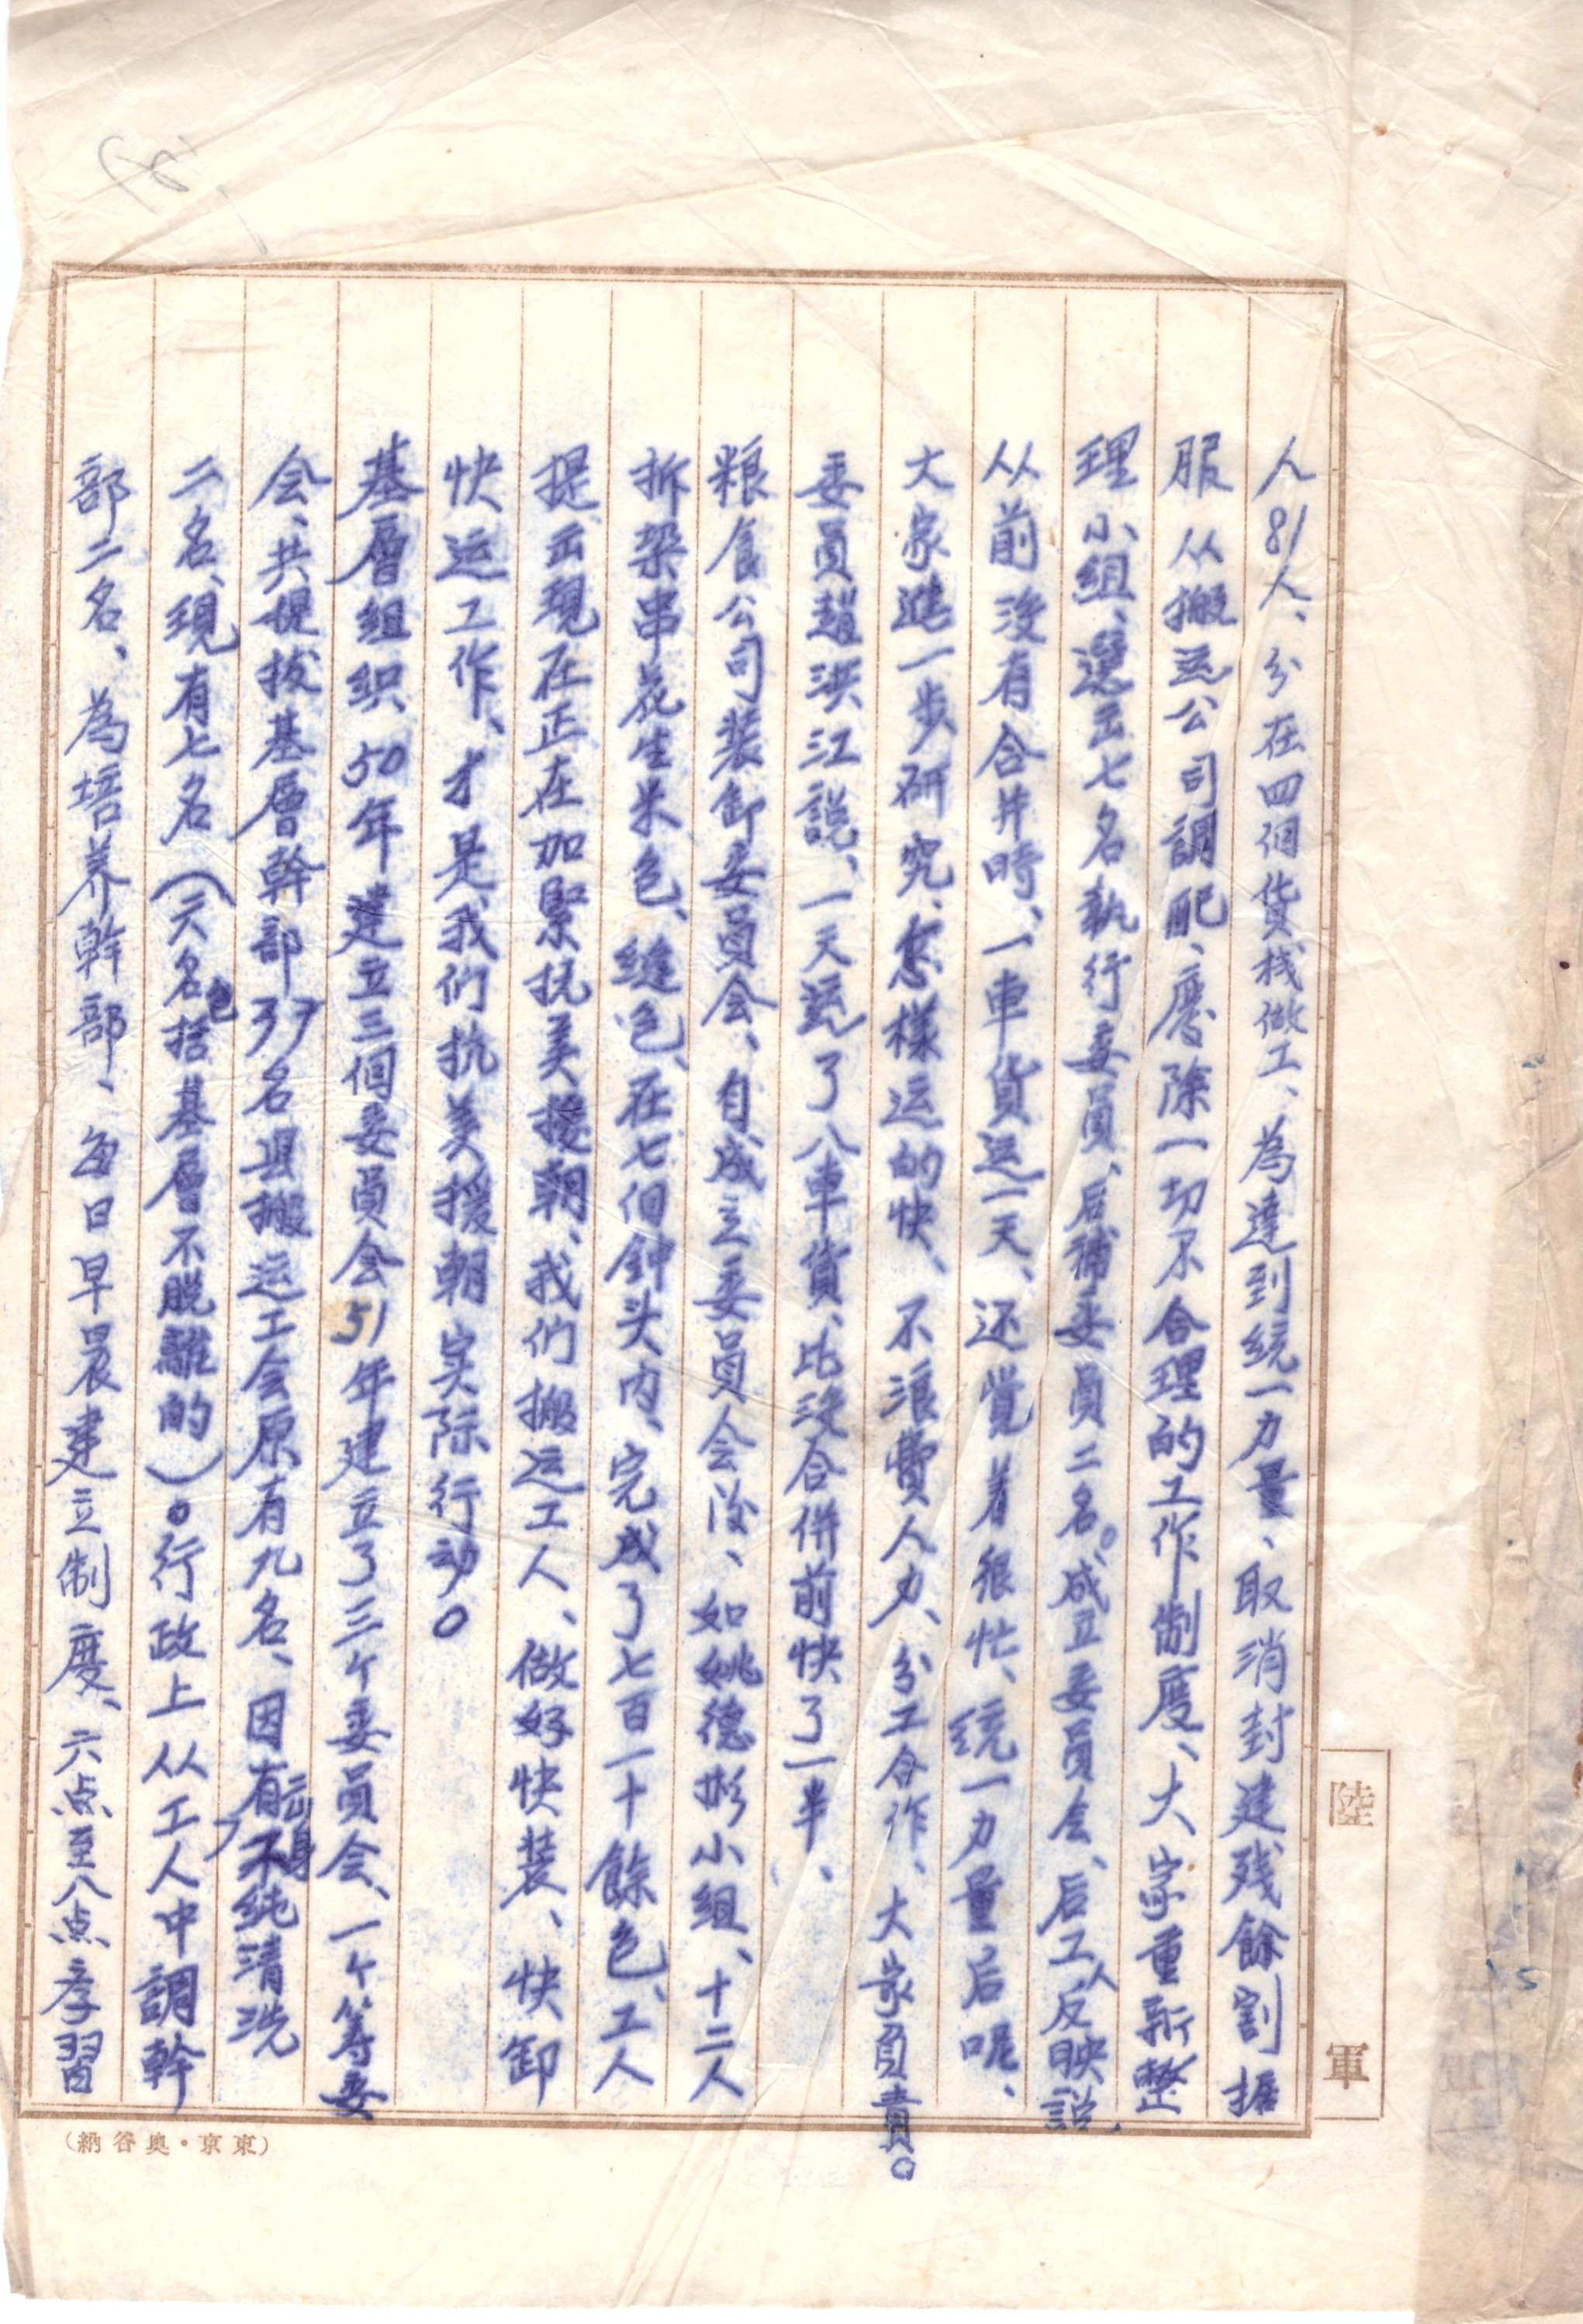 人81人、分在四個货栈做工、為達到統一力量、取消封建残餘割據
服从搬运公司調配、廢除一切不合理的工作制度、大家重新整
理小组、選出七名執行委員、后補委員二名。成立委員会、后工人反映説、
从前没有合并時、一車貨运一天、还覚着很忙、統一力量后呢、
大家進一步研究、怎樣运的快、不浪費人力、分工合作、大家負責。
委員趙洪江説、一天运了八車貨、比没合併前快了一半、
粮食公司裝卸委員会、自成立委員会后、如姚德彬小组、十二人
拆架串花生米包、缝包、在七個钟头内、完成了七百一十餘包、工人
提出現在正在加緊抗美援朝、我们搬运工人、做好快裝、快卸
快运工作、才是我们抗美援朝实际行动。
基層组织50年建立三個委員会51年建立了三个委員会、一个筹委
会、共提拔基層幹部37名县搬运工会原有九名、因有不純清洗
二名、現有七名（六名包括基層不脱離的）。行政上从工人中調幹
部二名、為培养幹部、每日早晨建立制度、六点至八点学習
陸軍
（東京・奥谷納）